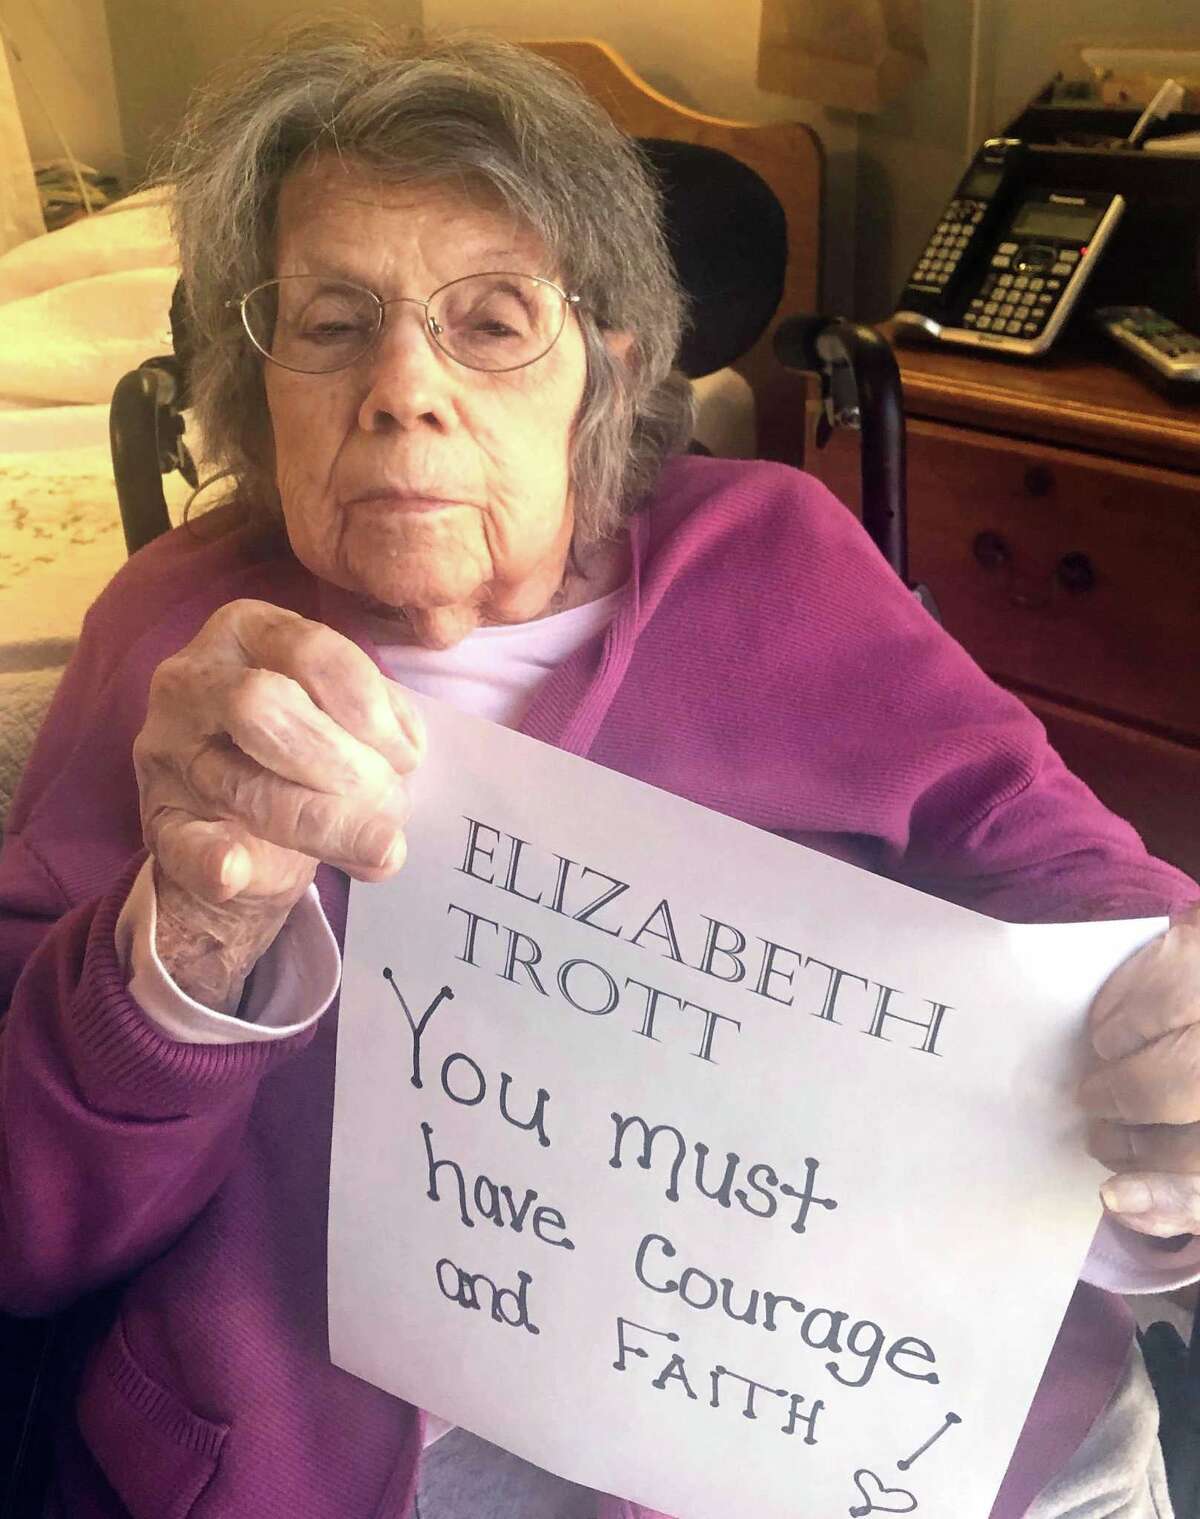 Panasonic
ELIZABETH
TROTT
You must
have Courage
and FAITH!